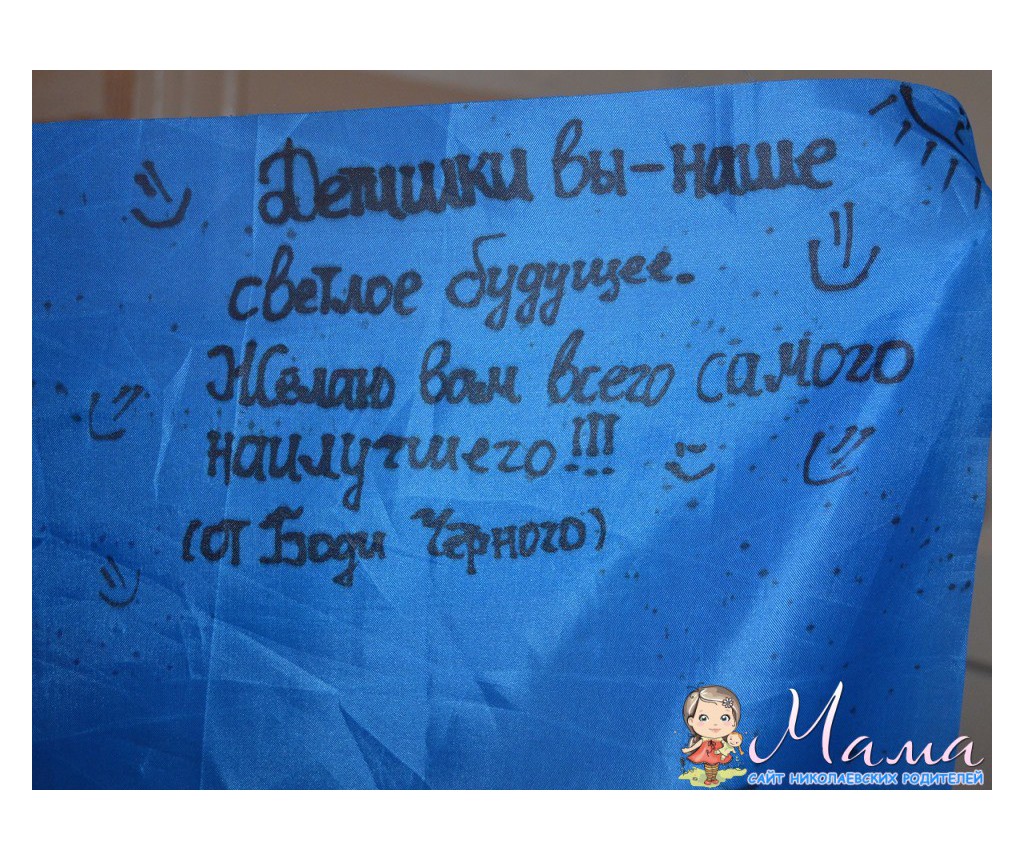 Детишки вы-наше
светлое будущее.
Желаю вам всего самого
наилучшего!!!
(от Боди Чёрного)
Мама
САЙТ НИКОЛАЕВСКИХ РОДИТЕЛЕЙ